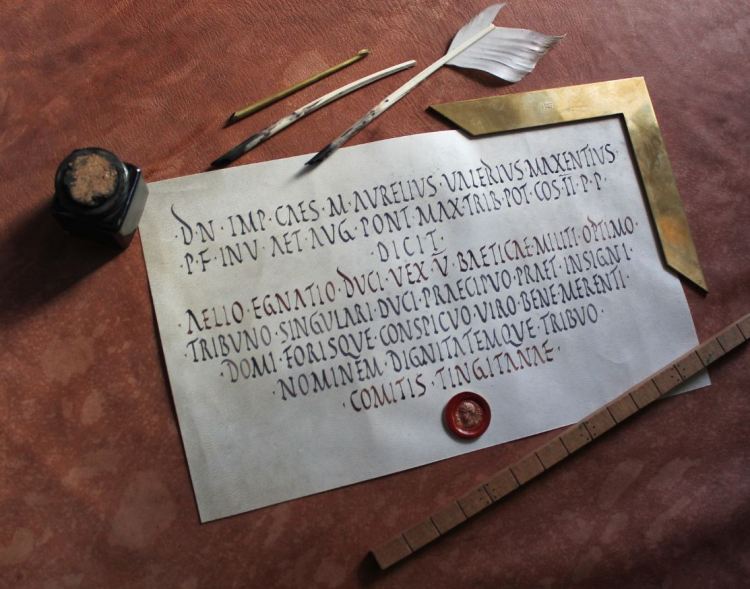 ·D·N · IMP · CAES · M · AVRELIVS · VALERIVS · MAXENTIVS ·
· P · F · INV · AET · AVG · PONT · MAX · TRIB · POT · COS · II · P · P ·
· DICIT ·
· AELIO · EGNATIO · DVCI · VEX · V · BAETICAE · MILITI · OPTIMO ·
TRIBVNO · SINGVLARI · DVCI · PRAECIPVO · PRAET · INSIGNI ·
· DOMI · FORISQVE · CONSPICVO · VIRO · BENE · MERENTI ·
· NOMINEM · DIGNITATEMQVE · TRIBVO ·
· COMITIS · TINGITANAE ·